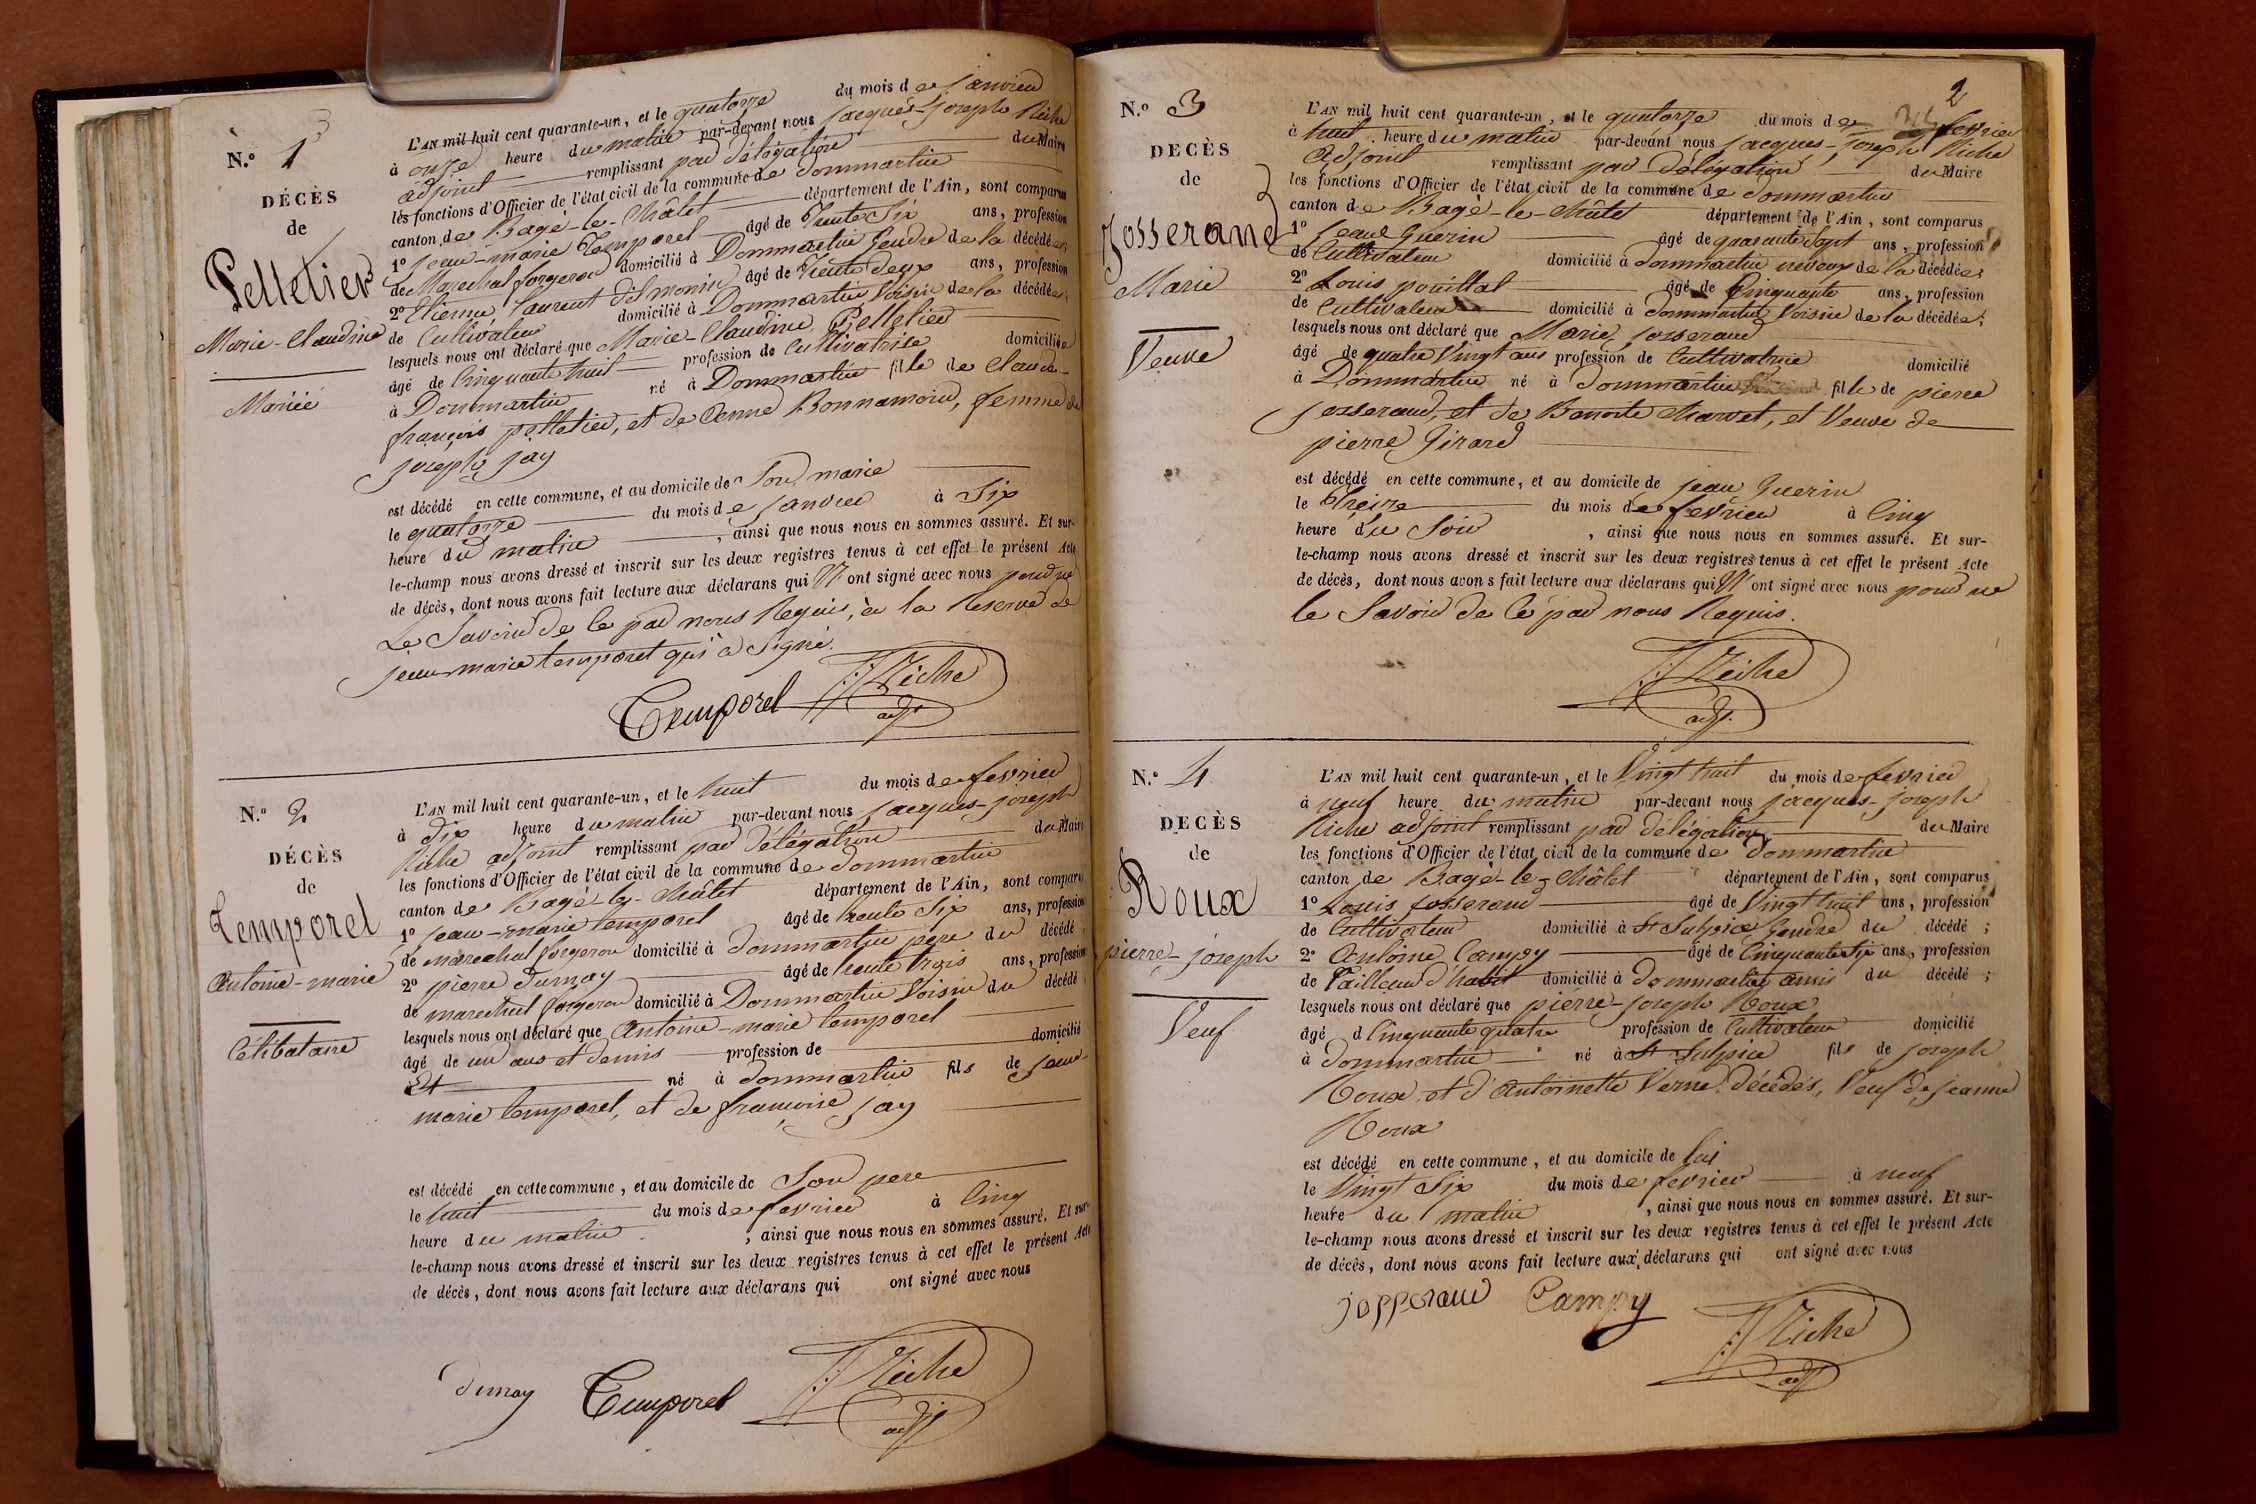 N.º 1
DÉCÈS
de
Pelletier
Marie-Claudine
Mariée
L'AN mil huit cent quarante-un, et le quatorze du mois de janvier
à onze heure du matin par-devant nous jacques-joseph Riche
adjoint remplissant par délégation du Maire
les fonctions d'Officier de l'état civil de la commune de Dommartin
canton de Bagé-le-Châtel département de l'Ain, sont comparus
1º jean-marie Temporel âgé de Trente Six ans, profession
de Marechal forgeron domicilié à Dommartin Gendre de la décédée;
2º Etienne Laurent âgé de Trente deux ans, profession
de Cultivateur domicilié à Dommartin Voisin de la décédée;
lesquels nous ont déclaré que Marie-Claudine Pelletier
âgé de Cinquante huit profession de Cultivatrice domiciliée
à Dommartin né à Dommartin fille de Claude-
françois pelletier, et de Bonnamour, femme de
joseph jay
est décédé en cette commune, et au domicile de Son marie
le quatorze du mois de janvier à Six
heure du matin, ainsi que nous nous en sommes assuré. Et sur-
le-champ nous avons dressé et inscrit sur les deux registres tenus à cet effet le présent Acte
de décès, dont nous avons fait lecture aux déclarans qui N' ont signé avec nous pour ne
Le Savoir de Ce par nous Requis, à la Reserve de
jean-marie temporel qui à Signé.
Temporel JJRiche
adjt
N.º 2
DÉCÈS
de
Temporel
antoine-marie
Célibataire
L'AN mil huit cent quarante-un, et le huit du mois de fevrier
à dix heure du matin par-devant nous jacques-joseph
Riche adjoint remplissant par délégation du Maire
les fonctions d'Officier de l'état civil de la commune de Dommartin
canton de Bagé-le-Châtel département de l'Ain, sont comparus
1º jean-marie temporel âgé de trente Six ans, profession
de marechal forgeron domicilié à dommartin pere du décédé;
2º pierre dumay âgé de trente trois ans, profession
de marechal forgeron domicilié à Dommartin Voisin du décédé;
lesquels nous ont déclaré que Antoine-marie temporel
âgé de un ans et demis profession de domicilié
à né à dommartin fils de jean-
marie temporel, et de francoise jay
est décédé en cette commune, et au domicile de Son pere
le huit du mois de fevrier à Cinq
heure du matin, ainsi que nous nous en sommes assuré. Et sur-
le-champ nous avons dressé et inscrit sur les deux registres tenus à cet effet le présent Acte
de décès, dont nous avons fait lecture aux déclarans qui ont signé avec nous
dumay Temporel JJRiche
adjt
2
N.º 3
DÉCÈS
de
Josserand
Marie
Veuve
L'AN mil huit cent quarante-un, et le quatorze du mois de fevrier
à huit heure du matin par-devant nous jacques-joseph Riche
adjoint remplissant par Délégation du Maire
les fonctions d'Officier de l'état civil de la commune de Dommartin
canton de Bagé-le-Châtel département de l'Ain, sont comparus
1º jean Guerin âgé de quarante Sept ans, profession
de Cultivateur domicilié à Dommartin neveux de la décédée;
2º Louis pouillat âgé de Cinquante ans, profession
de Cultivateur domicilié à Dommartin Voisin de la décédée;
lesquels nous ont déclaré que Marie josserand
âgé de quatre Vingt ans profession de Cultivatrice domicilié
à Dommartin né à Dommartin fille de pierre
josserand, et de Benoite Marvet, et Veuve de
pierre Girard
est décédé en cette commune, et au domicile de jean Guerin
le Treize du mois de fevrier à Cinq
heure du Soir, ainsi que nous nous en sommes assuré. Et sur-
le-champ nous avons dressé et inscrit sur les deux registres tenus à cet effet le présent Acte
de décès, dont nous avons fait lecture aux déclarans qui N' ont signé avec nous pour ne
le Savoir de Ce par nous Requis.
JJRiche
adjt
N.º 4
DÉCÈS
de
Roux
pierre-joseph
Veuf
L'AN mil huit cent quarante-un, et le Vingt huit du mois de fevrier
à neuf heure du matin par-devant nous jacques-joseph
Riche adjoint remplissant par délégation du Maire
les fonctions d'Officier de l'état civil de la commune de Dommartin
canton de Bagé-le-Châtel département de l'Ain, sont comparus
1º Louis josserand âgé de Vingt huit ans, profession
de Cultivateur domicilié à St Sulpice Gendre du décédé;
2º Antoine Campy âgé de Cinquante Six ans, profession
de Tailleur d'habit domicilié à Dommartin amis du décédé;
lesquels nous ont déclaré que pierre-joseph Roux
âgé d Cinquante quatre profession de Cultivateur domicilié
à Dommartin né à St Sulpice fils de joseph
Roux, et d'Antoinette Verne décédés, Veuf de jeanne
Roux
est décédé en cette commune, et au domicile de Lui
le Vingt Six du mois de fevrier à neuf
heure du matin, ainsi que nous nous en sommes assuré. Et sur-
le-champ nous avons dressé et inscrit sur les deux registres tenus à cet effet le présent Acte
de décès, dont nous avons fait lecture aux déclarans qui ont signé avec nous
josserand Campy JJRiche
adjt